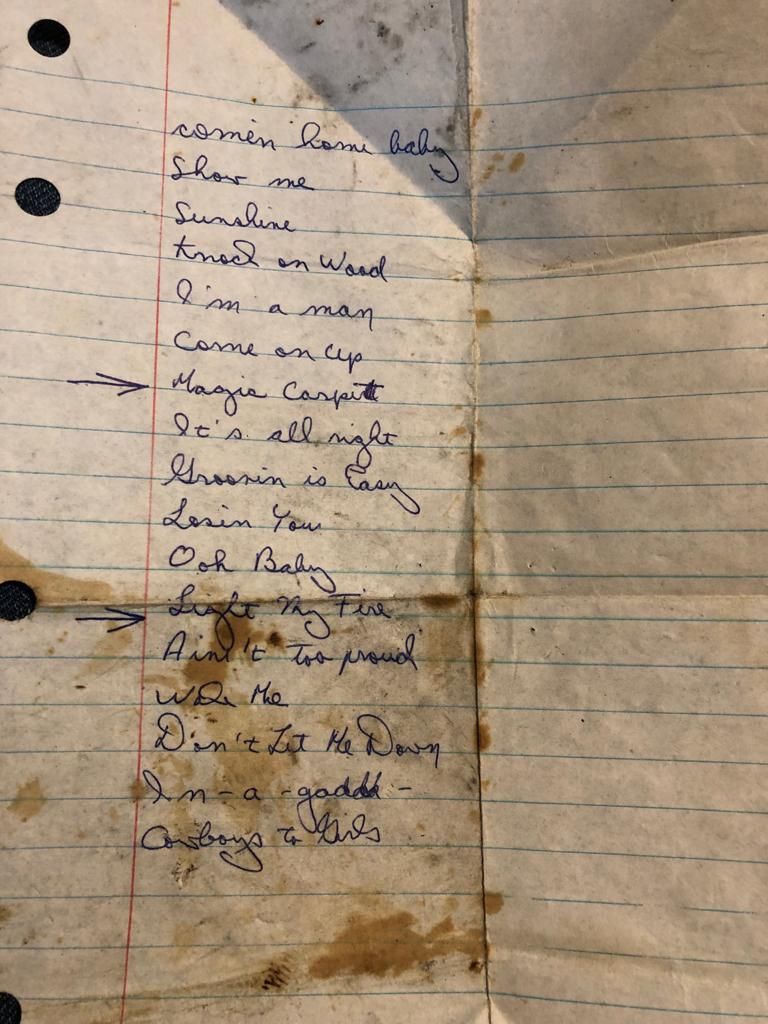 comen home baby
Show me
Sunshine
Knock on Wood
I'm a man
Come on Up
Magic Carpitt
It's all right
Groovin is Easy
Losin You
Ooh Baby
Light My Fire
Ain't too proud
Me
Don't Let Me Down
In-a-gaddd-
Cowboys to Girls